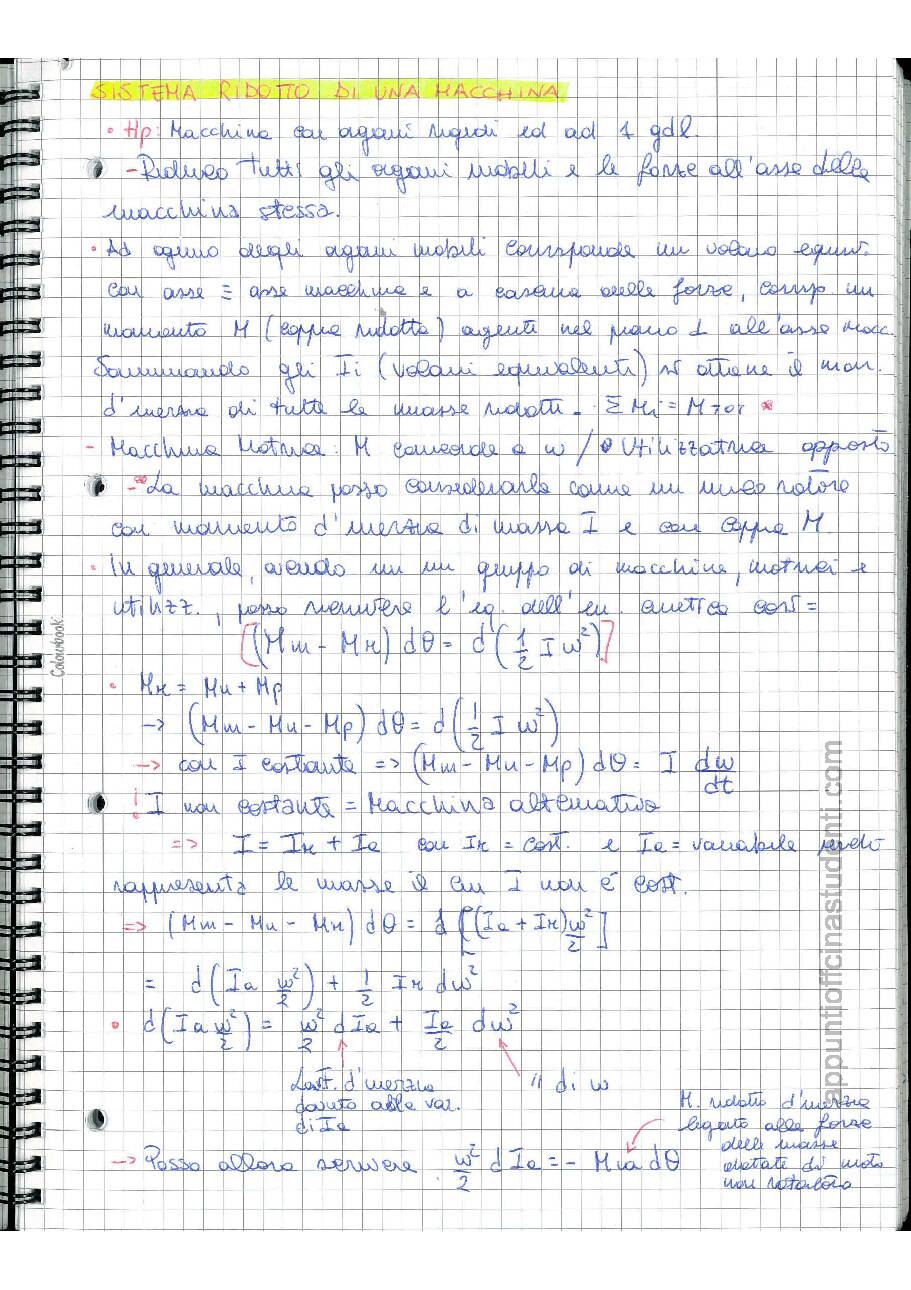 SISTEMA RIDOTTO DI UNA MACCHINA
• Hp: Macchina con organi rigidi ed ad 1 gdl.
- Riduco tutti gli organi mobili e le forze all'asse della
macchina stessa.
• Ad ognuno degli organi mobili corrisponde un volano equiv.
con asse ≡ asse macchina e a ciascuna delle forze, corrisp un
momento M (coppia ridotta) agenti nel piano ⊥ all'asse macc.
Sommando gli Ii (volani equivalenti) si ottiene il mom.
d'inerzia di tutte le masse ridotti. Σ Mi = MTOT *
- Macchina Motrice: M concorde a w / Utilizzatrice opposto
-* La macchina posso considerarla come un unico rotore
con momento d'inerzia di massa I e con coppia M.
• In generale, avendo un un gruppo di macchine, motrici e
utilizz., posso riscrivere l'eq. dell'en. cinetica così =
[(Mm - Mr) dθ = d(1/2 I w²)]
• Mr = Mu + Mp
-> (Mm - Mu - Mp) dθ = d(1/2 I w²)
-> con I costante => (Mm - Mu - Mp) dθ = I dw/dt
! I non costante = Macchina alternativa
=> I = Ir + Ia con Ir = cost. e Ia = variabile perchè
rappresenta le masse il cui I non è cost.
=> (Mm - Mu - Mr) dθ = d[(Ia + Ir) w²/2]
= d(Ia w²/2) + 1/2 Ir dw²
• d(Ia w²/2) = w²/2 dIa + Ia/2 dw²
d'inerzia
dovuto alla var.
di Ia
" di w
M. ridotto d'inerzia
legato alle forze
delle masse
dotate di moto
non rotatorio
-> Posso allora scrivere w²/2 dIa = - Mia dθ
Colourbook
appuntiofficinastudenti.com